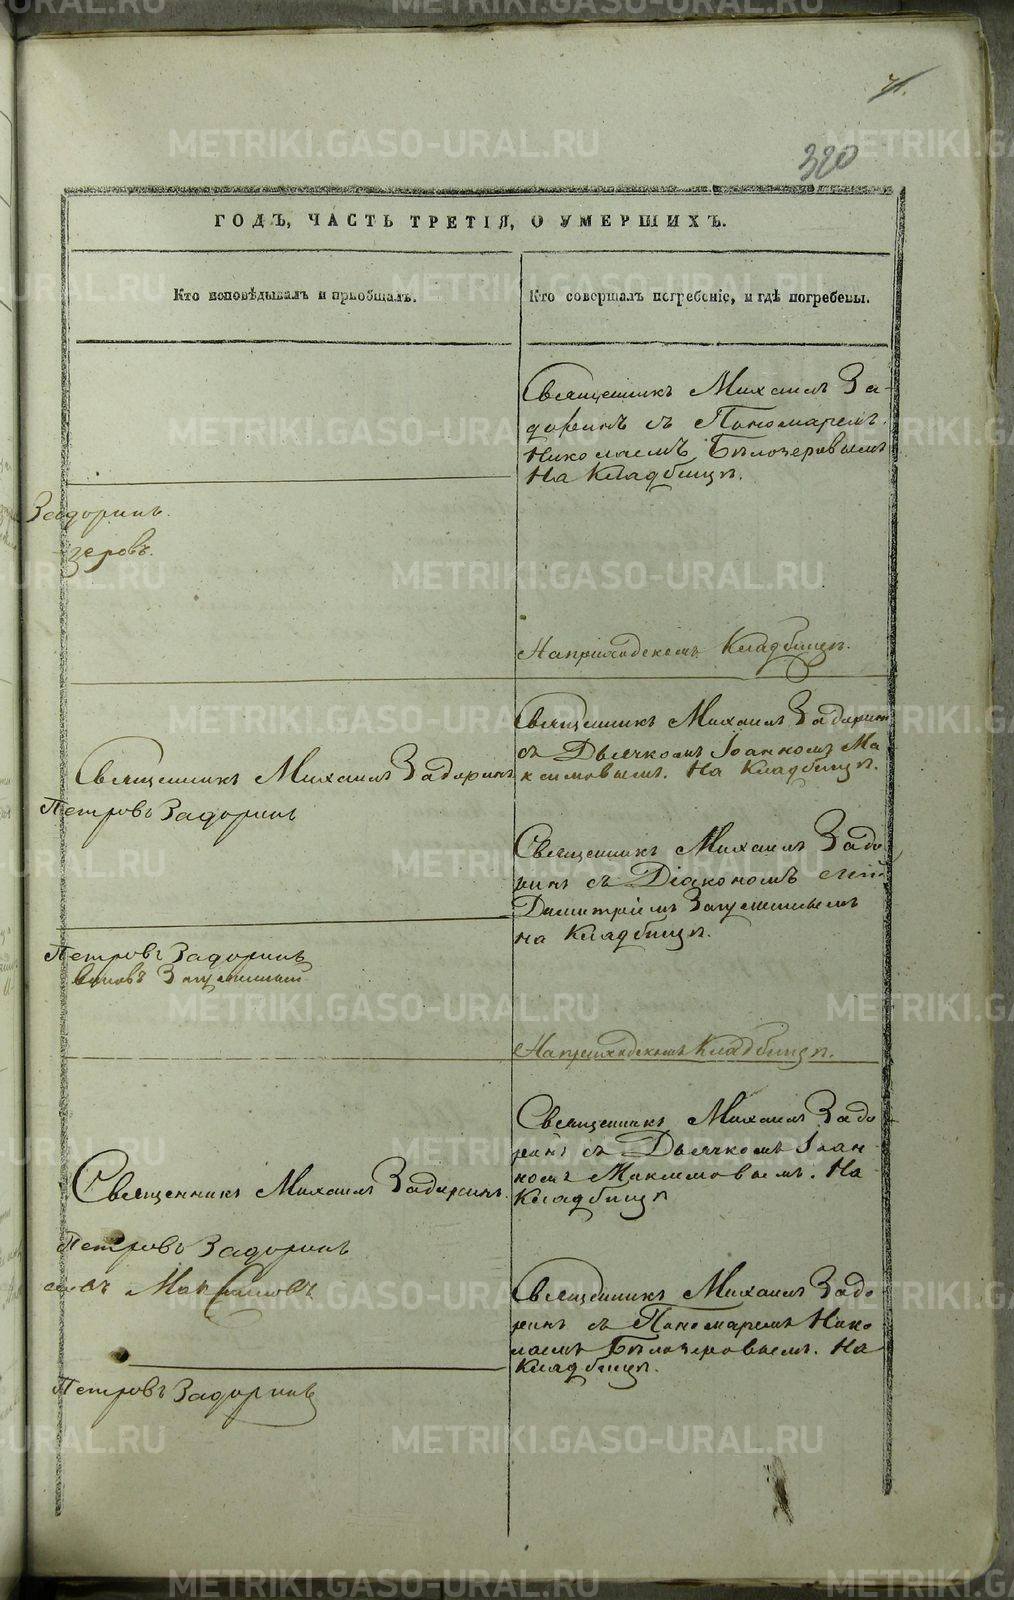 320
ГОДЪ, ЧАСТЬ ТРЕТІЯ, О УМЕРШИХЪ.
Кто исповѣдывалъ и пріобщалъ.
Кто совершалъ погребеніе, и гдѣ погребены.
Священникъ Михаилъ За-
доринъ съ Пономаремъ
Николаемъ Бѣлозеровымъ
На Кладбищѣ.
Задоринъ.
зеровъ.
На приходскомъ Кладбищѣ.
Священникъ Михаилъ Задоринъ
съ Дьячкомъ Іоанномъ Ма
ксимовымъ. На Кладбищѣ.
Священникъ Михаилъ Задоринъ
Петровъ Задоринъ
Священникъ Михаилъ Задо
ринъ съ Діакономъ
Димитріемъ
на Кладбищѣ.
Петровъ Задоринъ
На приходскомъ Кладбищѣ.
Священникъ Михаилъ Задо
ринъ съ Дьячкомъ Іоан-
номъ Максимовымъ. На
Кладбищѣ
Священникъ Михаилъ Задоринъ.
Петровъ Задоринъ
Максимовъ
Священникъ Михаилъ Задо
ринъ съ Пономаремъ Нико
лаемъ Бѣлозеровымъ. На
Кладбищѣ.
Петровъ Задоринъ
METRIKI.GASO-URAL.RU